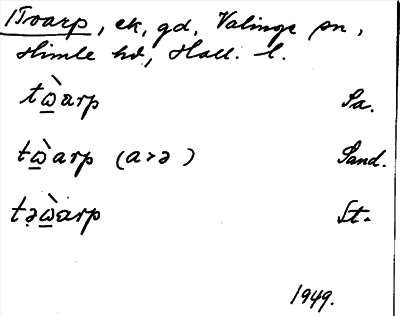 1Toarp, ek, gd, Valinge sn,
Himle hd, Hall. l.
tὼ̲arp Sa.
tὼ̲arp (a>ə) Sand.
tə̣ὼ̲arp St.
1949.